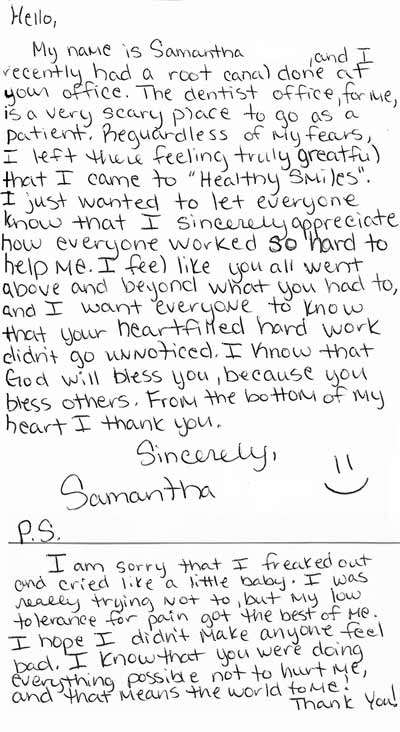 Hello,
My name is Samantha ,and I
recently had a root canal done at
your office. The dentist office, for me,
is a very scary place to go as a
patient. Reguardless of my fears,
I left there feeling truly greatful
that I came to "Healthy Smiles".
I just wanted to let everyone
know that I sincerely appreciate
how everyone worked so hard to
help me. I feel like you all went
above and beyond what you had to,
and I want everyone to know
that your heartfilled hard work
didn't go unnoticed. I know that
God will bless you, because you
bless others. From the bottom of my
heart I thank you.
Sincerely,
Samantha
P.S.
I am sorry that I freaked out
and cried like a little baby. I was
really trying not to, but my low
tolerance for pain got the best of me.
I hope I didn't make anyone feel
bad. I know that you were doing
everything possible not to hurt me,
and that means the world to me!
Thank You!